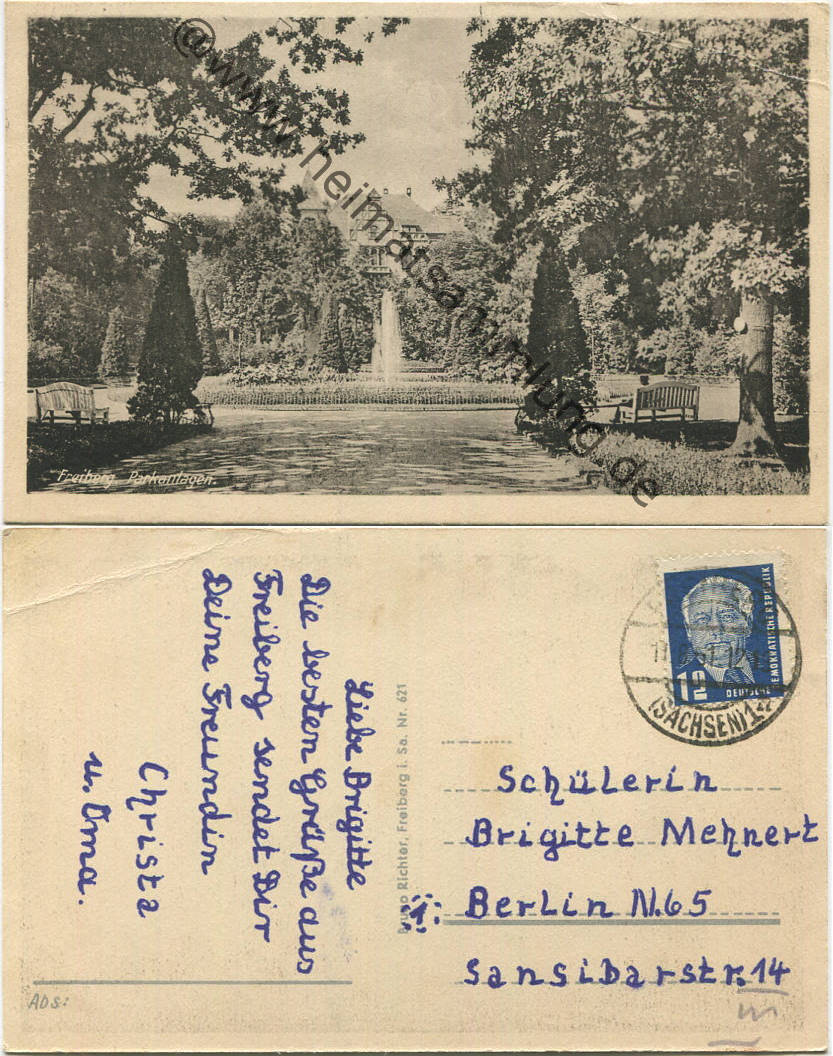 @www.heimatsammlung.de
Freiberg Parkanlagen.
Liebe Brigitte
Die besten Grüße aus
Freiberg sendet Dir
Deine Freundin
Christa
u. Oma.
Abs:
Bruno Richter, Freiberg i. Sa. Nr. 621
DEUTSCHE DEMOKRATISCHE REPUBLIK
12
(SACHSEN) 1
Schülerin
Brigitte Mehnert
1
Berlin N.65
Sansibarstr. 14